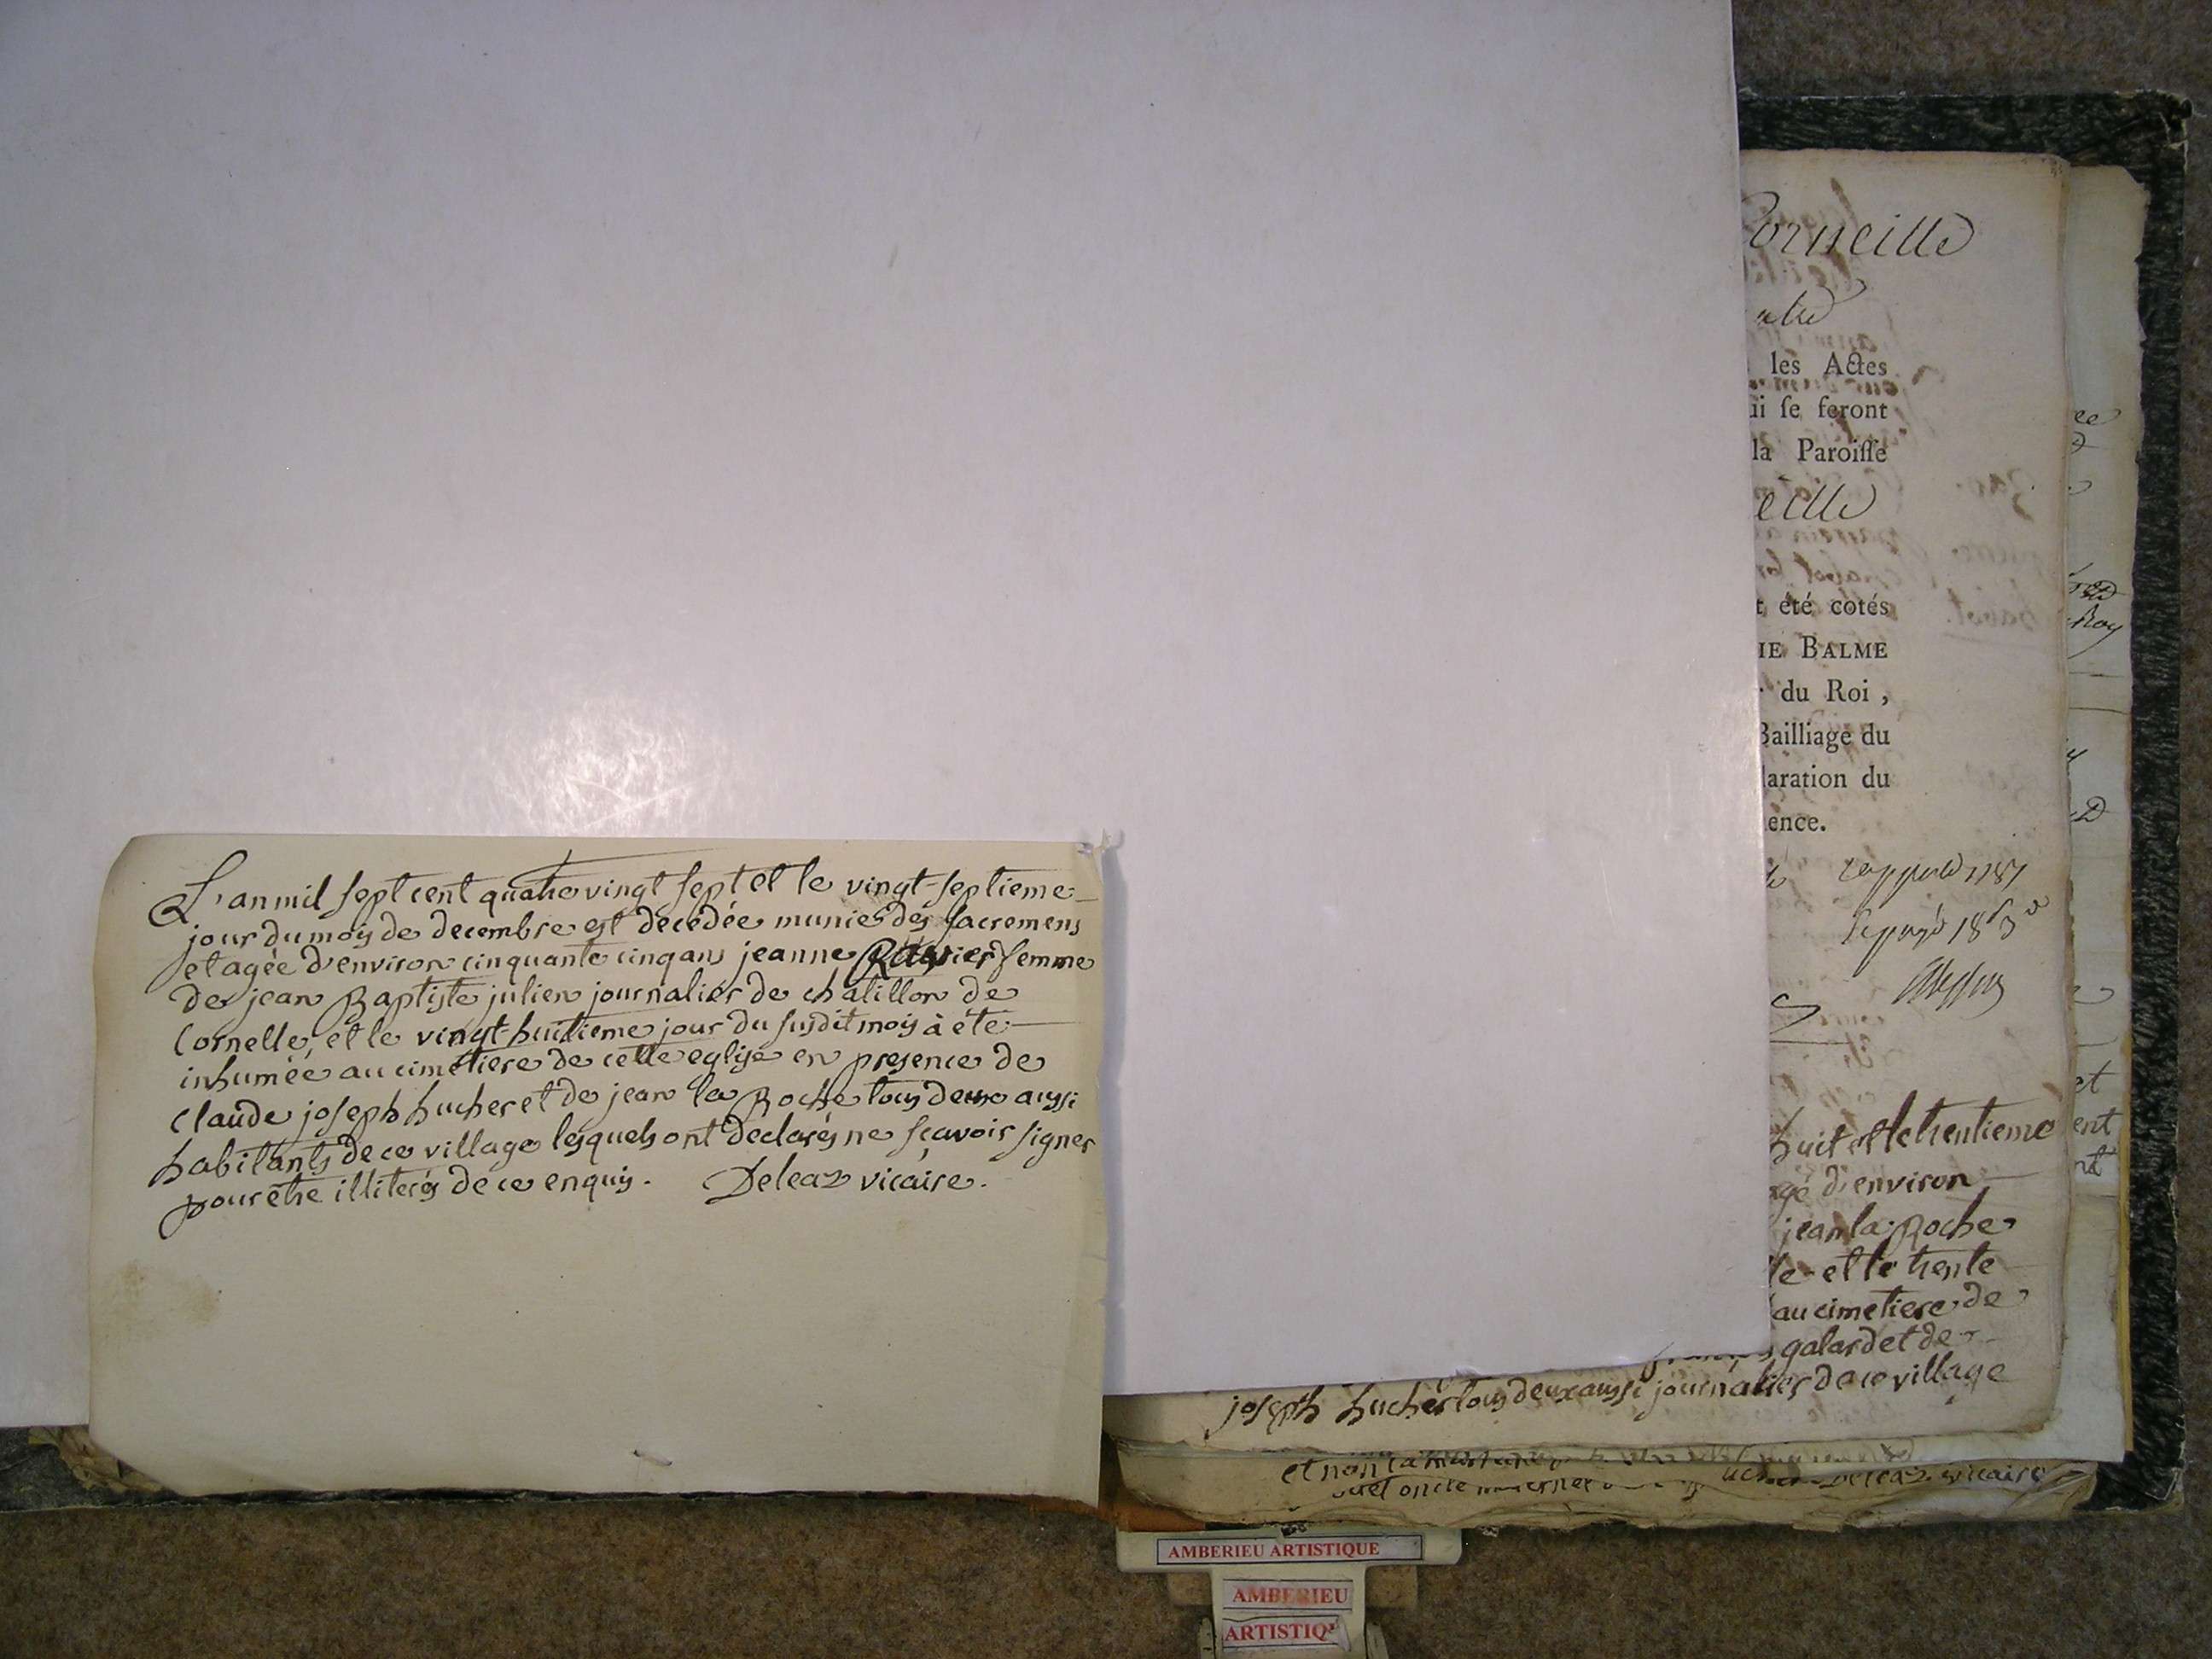 L'an mil sept cent quatre vingt sept et le vingt-septieme
jour du mois de decembre est decédée munie des sacremens
et agée d'environ cinquante cinq ans jeanne Ravier femme
de jean Baptiste julien journalier de chatillon de
Cornelle, et le vingt-huitieme jour du susdit mois à été
inhumée au cimetiere de cette eglise en presence de
claude joseph hucher et de jean la Roche tous deux aussi
habitants de ce village lesquels ont declarés ne sçavoir signer
pour etre illiterés de ce enquis. Deleaz vicaire.
orneille
les Actes
ui se feront
la Paroisse
eille
t été cotés
IE BALME
du Roi,
Bailliage du
laration du
ence.
huit et le trentieme
agé d'environ
jean la Roche
le et le trente
au cimetiere de
galard et de
joseph hucher tous deux aussi journalier de ce village
Deleaz vicaire
AMBERIEU ARTISTIQUE
AMBERIEU
ARTISTIQ